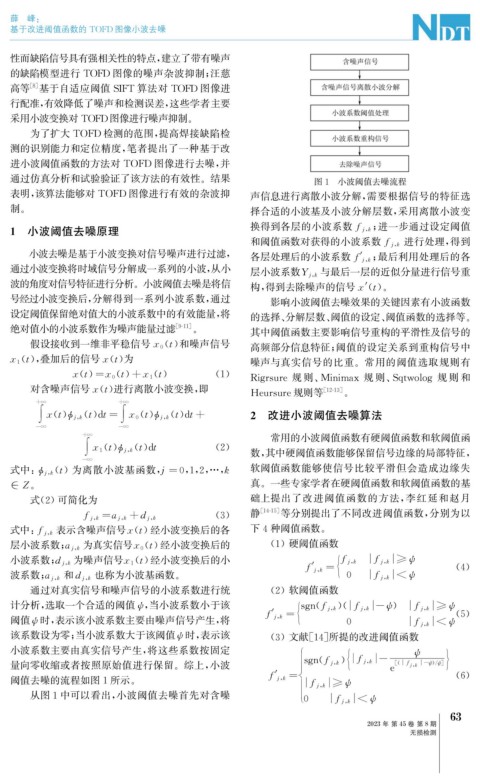 薛　峰：
基于改进阈值函数的 TOFD 图像小波去噪
NDT
性而缺陷信号具有强相关性的特点,建立了带有噪声
的缺陷模型进行 TOFD 图像的噪声杂波抑制;汪慈
高等[8]基于自适应阈值 SIFT 算法对 TOFD 图像进
行配准,有效降低了噪声和检测误差,这些学者主要
采用小波变换对 TOFD 图像进行噪声抑制。
为了扩大 TOFD 检测的范围,提高焊接缺陷检
测的识别能力和定位精度,笔者提出了一种基于改
进小波阈值函数的方法对 TOFD 图像进行去噪,并
通过仿真分析和试验验证了该方法的有效性。结果
表明,该算法能够对 TOFD 图像进行有效的杂波抑
制。
1　小波阈值去噪原理
小波去噪是基于小波变换对信号噪声进行过滤,
通过小波变换将时域信号分解成一系列的小波,从小
波的角度对信号特征进行分析。小波阈值去噪是将信
号经过小波变换后,分解得到一系列小波系数,通过
设定阈值保留绝对值大的小波系数中的有效能量,将
绝对值小的小波系数作为噪声能量过滤[9-11]。
假设接收到一维非平稳信号 x₀(t)和噪声信号
x₁(t),叠加后的信号 x(t)为
x(t)=x₀(t)+x₁(t)　(1)
对含噪声信号 x(t)进行离散小波变换,即
∫_{-∞}^{+∞} x(t)ϕj,k(t)dt=∫_{-∞}^{+∞} x₀(t)ϕj,k(t)dt +
∫_{-∞}^{+∞} x₁(t)ϕj,k(t)dt　(2)
式中: ϕj,k(t) 为离散小波基函数,j =0,1,2,…,k
∈ Z。
式(2)可简化为
fj,k=aj,k+dj,k　(3)
式中: fj,k 表示含噪声信号x(t)经小波变换后的各
层小波系数;aj,k 为真实信号x₀(t)经小波变换后的
小波系数;dj,k 为噪声信号x₁(t)经小波变换后的小
波系数;aj,k 和 dj,k 也称为小波基函数。
通过对真实信号和噪声信号的小波系数进行统
计分析,选取一个合适的阈值ψ,当小波系数小于该
阈值ψ时,表示该小波系数主要由噪声信号产生,将
该系数设为零;当小波系数大于该阈值ψ时,表示该
小波系数主要由真实信号产生,将这些系数按固定
量向零收缩或者按照原始值进行保留。综上,小波
阈值去噪的流程如图 1 所示。
从图 1 中可以看出,小波阈值去噪首先对含噪
含噪声信号
含噪声信号离散小波分解
小波系数阈值处理
小波系数重构信号
去除噪声信号
图 1　小波阈值去噪流程
声信息进行离散小波分解,需要根据信号的特征选
择合适的小波基及小波分解层数,采用离散小波变
换得到各层的小波系数 fj,k;进一步通过设定阈值
和阈值函数对获得的小波系数 fj,k 进行处理,得到
各层处理后的小波系数 f′j,k;最后利用处理后的各
层小波系数Yj,k 与最后一层的近似分量进行信号重
构,得到去除噪声的信号 x′(t)。
影响小波阈值去噪效果的关键因素有小波函数
的选择、分解层数、阈值的设定、阈值函数的选择等。
其中阈值函数主要影响信号重构的平滑性及信号的
高频部分信息特征;阈值的设定关系到重构信号中
噪声与真实信号的比重。常用的阈值选取规则有
Rigrsure 规则、Minimax 规则、Sqtwolog 规则和
Heursure 规则等[12-13]。
2　改进小波阈值去噪算法
常用的小波阈值函数有硬阈值函数和软阈值函
数,其中硬阈值函数能够保留信号边缘的局部特征,
软阈值函数能够使信号比较平滑但会造成边缘失
真。一些专家学者在硬阈值函数和软阈值函数的基
础上提出了改进阈值函数的方法,李红延和赵月
静[14-15]等分别提出了不同改进阈值函数,分别为以
下 4 种阈值函数。
(1) 硬阈值函数
f′j,k={fj,k　|fj,k|≥ψ
0　|fj,k|<ψ　(4)
(2) 软阈值函数
f′j,k={sgn(fj,k)(|fj,k|−ψ)　|fj,k|≥ψ
0　|fj,k|<ψ　(5)
(3) 文献[14]所提的改进阈值函数
f′j,k={sgn(fj,k){|fj,k|−ψ/e^[(|fj,k|−ψ)/ψ]}
|fj,k|≥ψ
0　|fj,k|<ψ　(6)
63
2023 年 第 45 卷 第 8 期
无损检测